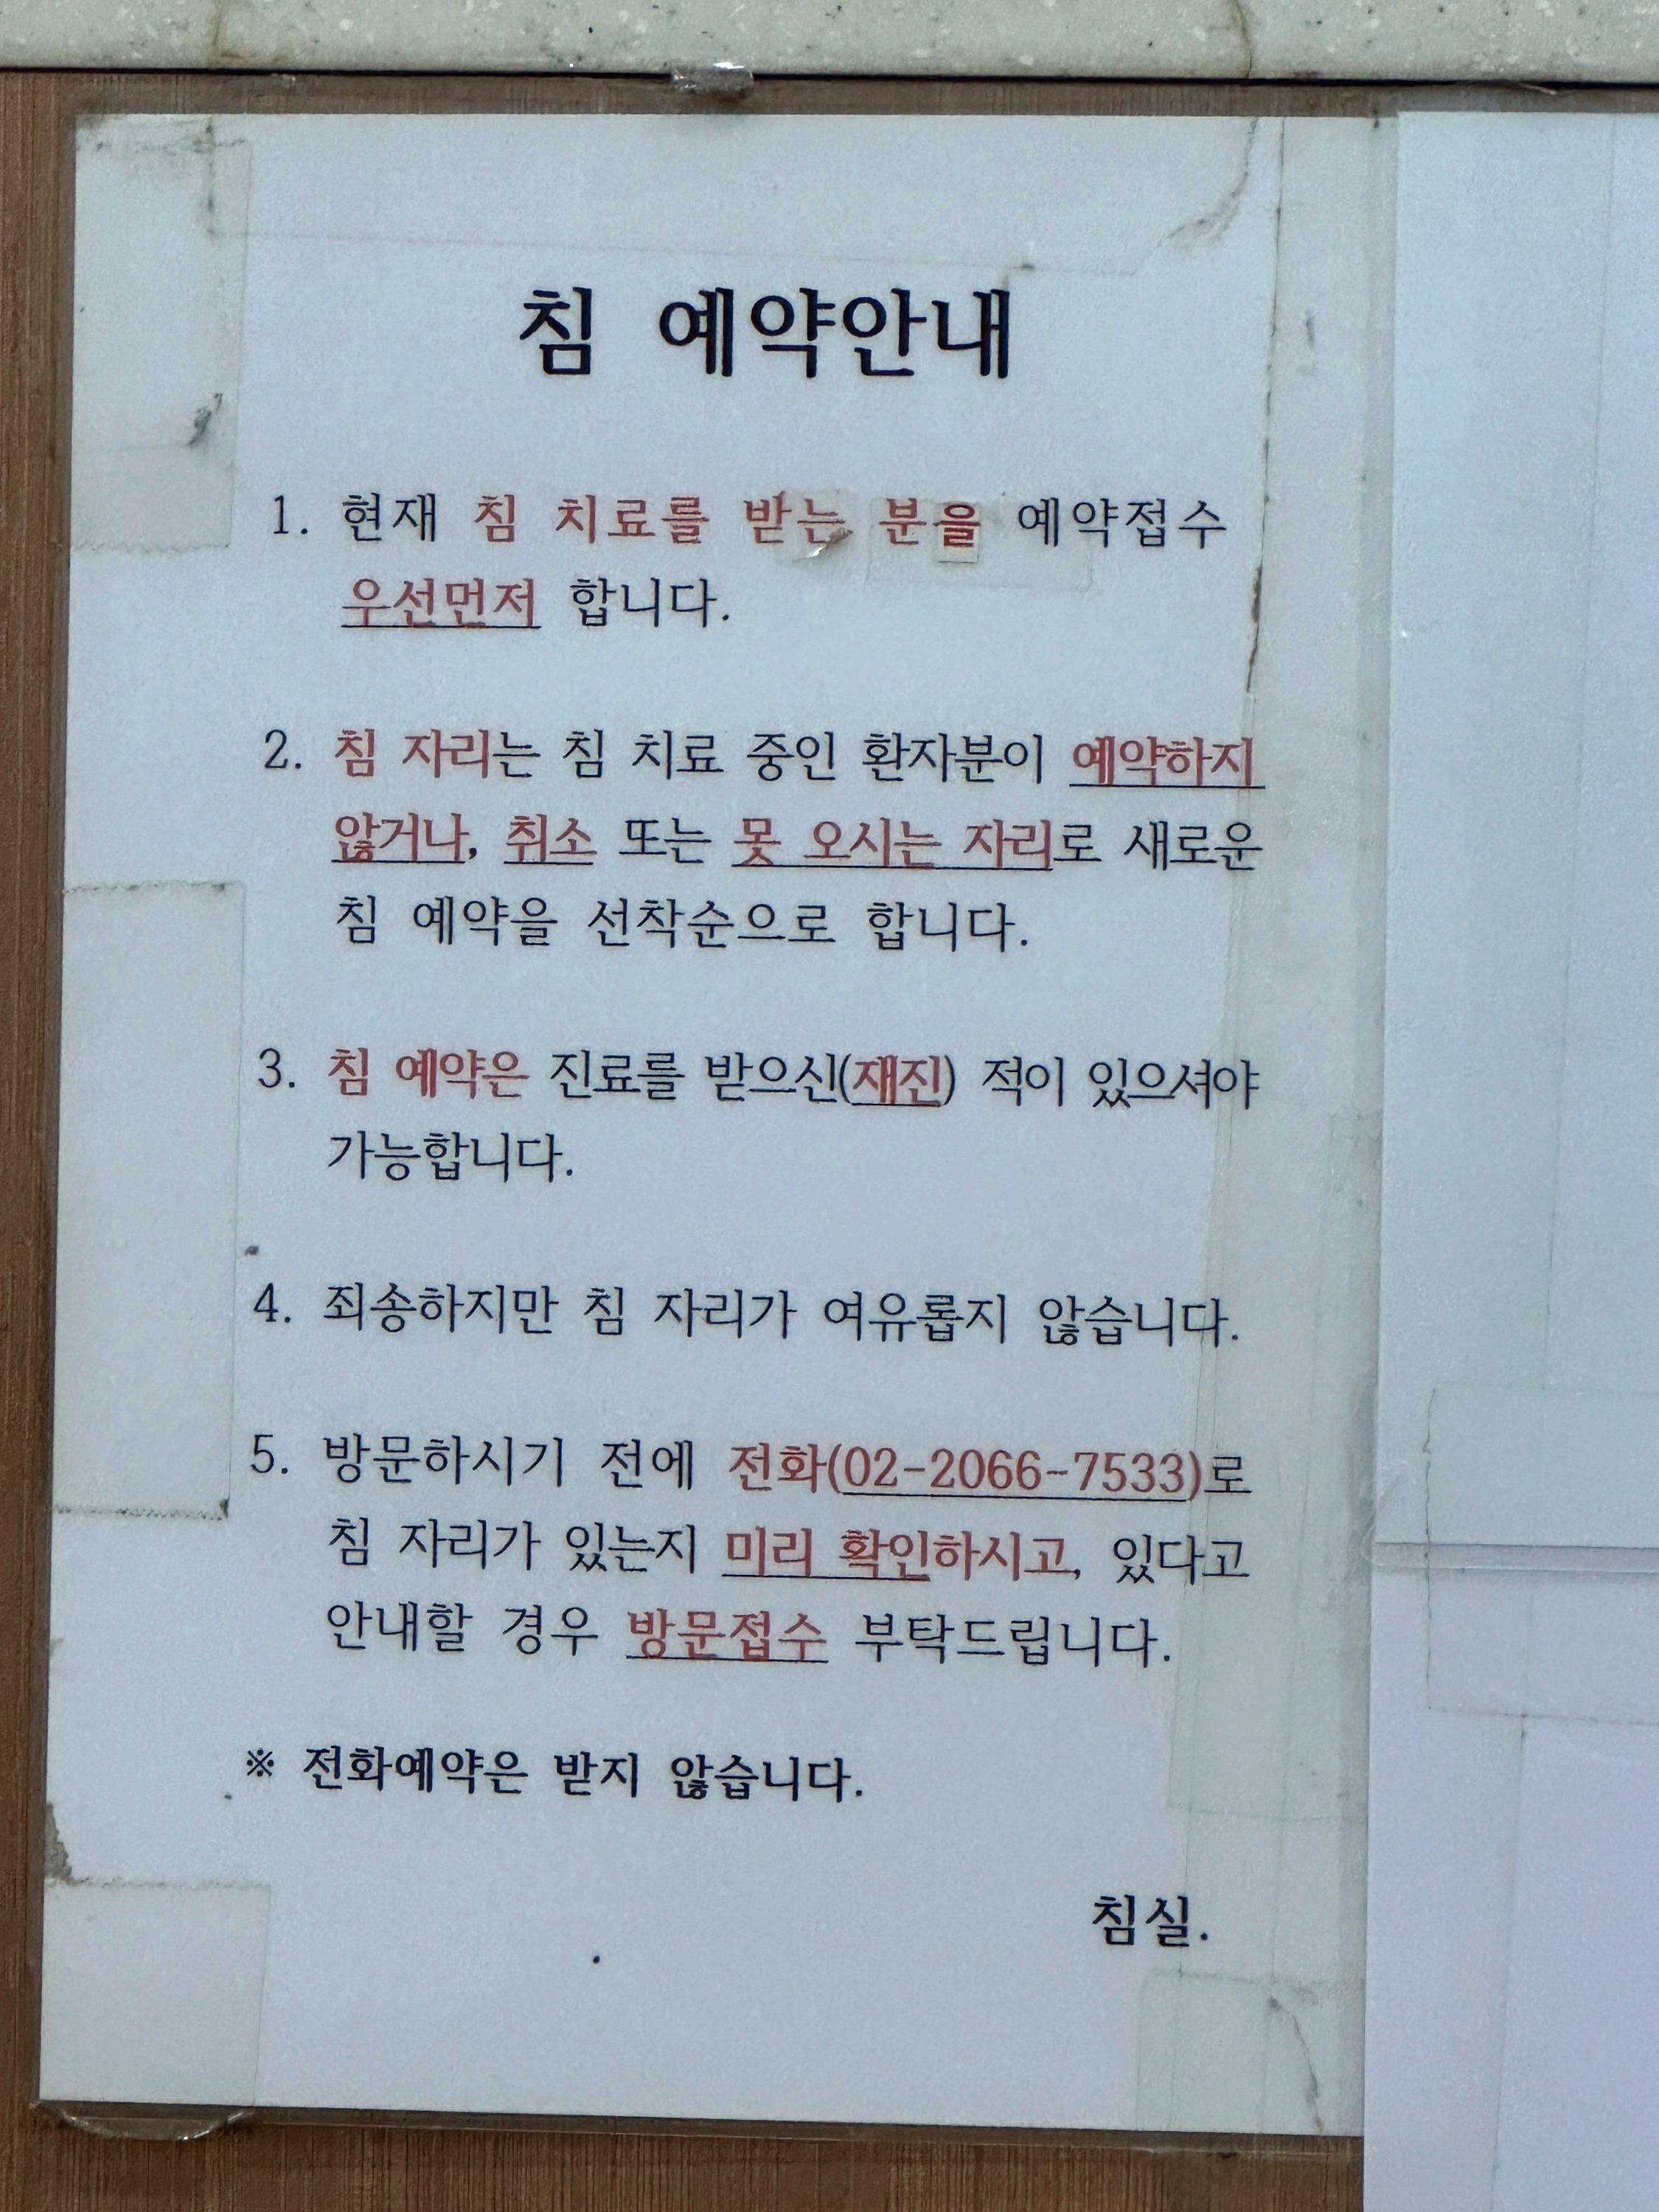 침 예약안내
1. 현재 침 치료를 받는 분을 예약접수
우선먼저 합니다.
2. 침 자리는 침 치료 중인 환자분이 예약하지
않거나, 취소 또는 못 오시는 자리로 새로운
침 예약을 선착순으로 합니다.
3. 침 예약은 진료를 받으신(재진) 적이 있으셔야
가능합니다.
4. 죄송하지만 침 자리가 여유롭지 않습니다.
5. 방문하시기 전에 전화(02-2066-7533)로
침 자리가 있는지 미리 확인하시고, 있다고
안내할 경우 방문접수 부탁드립니다.
※ 전화예약은 받지 않습니다.
침실.